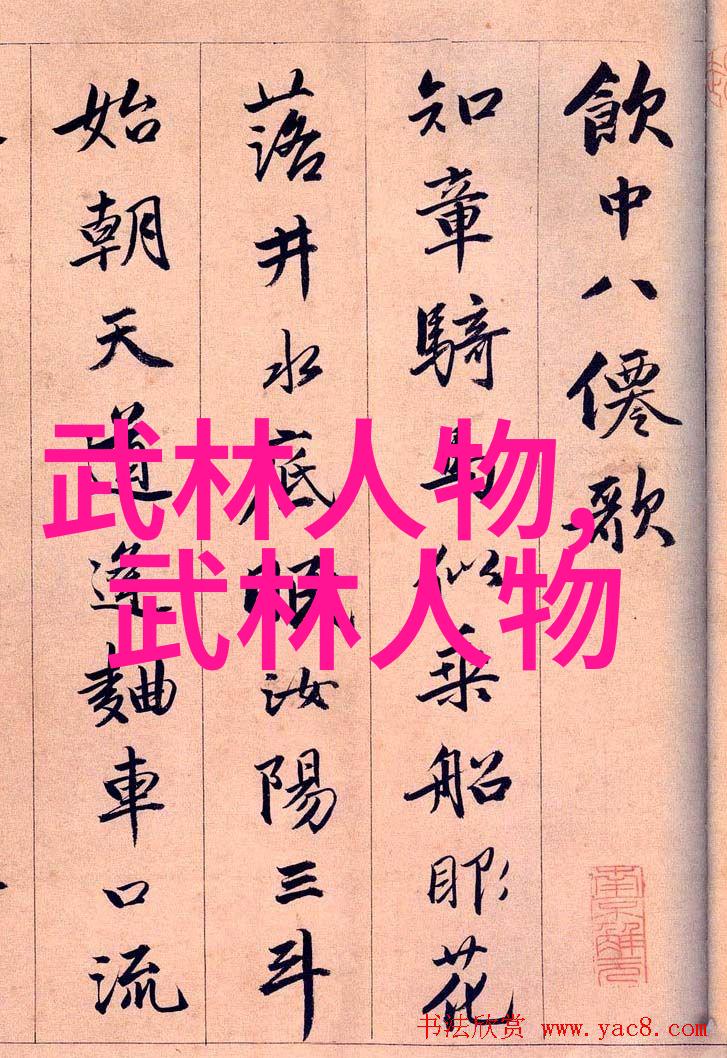 飲中八僊歌
知章騎馬似乘船眼花
落井水底眠汝陽三斗
始朝天道逢麯車口流
武林人物,
武林人物
南京解元
书法欣赏 www.yac8.com